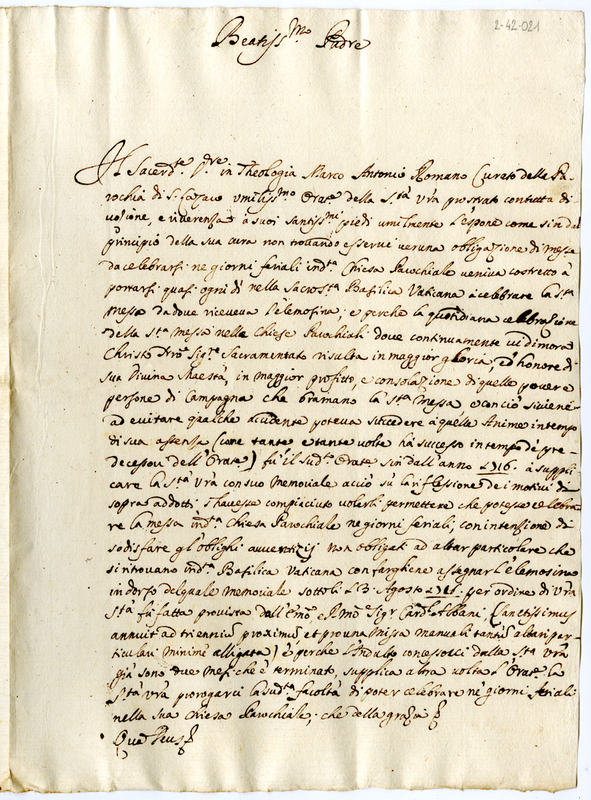 2-42-021
Beatiss.mo Padre
Il Sacerd.te Pre. in Theologia Marco Antonio Romano Curato della Pa-
rochia di S. Lazaro umiliss.mo Orat.e della S.tà Vra prostrato con tutta di-
uozione, e riuerenza a suoi Santiss.mi piedi umilmente l'espone come sin dal
principio della sua cura non trouando esserue ueruna obligazione di messe
da celebrarsi ne giorni feriali in d.ta Chiesa Parochiale ueniua costretto à
portarsi quasi ogni dì nella Sacros.ta Basilica Vaticana à celebrare la S.ta
Messa da doue riceueua l'elemosina; e perche la quotidiana celebrazione
della S.ta Messa nelle Chiese Parochiali doue continuamente ui dimora
Christo Nro Sig.re Sacramentato risulta in maggior gloria, ed honore di
Sua Diuina Maestà, in maggior profitto, e consolazione di quelle pouere
persone di Campagna che bramano la S.ta Messa e con ciò si uiene
ad euitare qualche accidente poteua succedere à quelle Anime in tempo
di sua assenza (come tante e tante uolte hà successo in tempo de pre-
decessori dell'Orat.e) fù il sud.to Orate sin dall'anno 1716. à suppli-
care la S.tà Vra con suo Memoriale acciò sù la riflessione de i motiui di
sopra addotti s'hauesse compiaciuto uolerli permettere che potesse celebra-
re la messa in d.ta Chiesa Parochiale ne giorni feriali, con intenzione di
sodisfare gl'oblighi auuentizij non obligati ad altar particolare che
si trouano in d.ta Basilica Vaticana con fargliene assegnar l'elemosina
in dorso del quale Memoriale sotto li 3. Agosto 1716. per ordine di Vra
S.tà fù fatta prouista dall'Emo e Rmo Sigr Card.le Albani, (Sanctissimus
annuit ad trienniũ proximũ et pro una Missa manuali tantũ altari par-
ticulari minime alligata) è perche l'Indulto concessoli dalla S.tà Vra
già sono due mesi che è terminato, supplica altra uolta l'Orat.e la
S.tà Vra prorogarci la sud.ta facoltà di poter celebrare ne giorni feriali
nella sua Chiesa Parochiale, che della grazia
Quã Deus